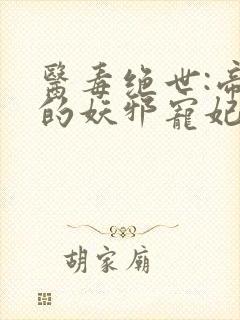 醫毒绝世:帝
的妖邪寵妃
胡家廟